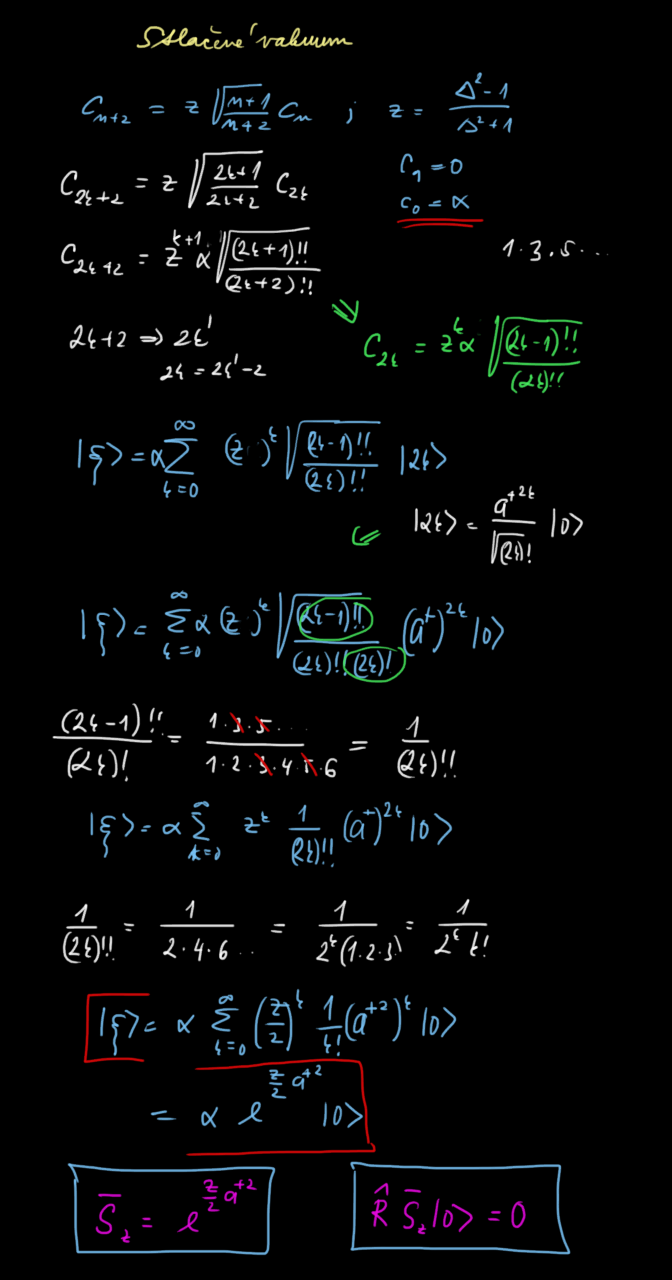 Stlačené vakuum
C_{n+2} = z √((n+1)/(n+2)) C_n ; z = (Δ²-1)/(Δ²+1)
C_{2k+2} = z √((2k+1)/(2k+2)) C_{2k}
C_1 = 0
C_0 = α
C_{2k+2} = z^{k+1} α √((2k+1)!!/(2k+2)!!)
1·3·5···
2k+2 ⇒ 2k'
2k = 2k'-2
C_{2k} = z^k α √((2k-1)!!/(2k)!!)
|ξ> = α ∑_{k=0}^{∞} (z)^k √((2k-1)!!/(2k)!!) |2k>
|2k> = a^{+2k}/√(2k)! |0>
|ξ> = ∑_{k=0}^{∞} α (z)^k √((2k-1)!!/((2k)!!(2k)!)) (a^+)^{2k} |0>
(2k-1)!!/(2k)! = (1·3·5···)/(1·2·3·4·5·6) = 1/(2k)!!
|ξ> = α ∑_{k=0}^{∞} z^k 1/(2k)!! (a^+)^{2k} |0>
1/(2k)!! = 1/(2·4·6··) = 1/(2^k(1·2·3)) = 1/(2^k k!)
|ξ> = α ∑_{k=0}^{∞} (z/2)^k 1/k! (a^{+2})^k |0>
= α e^{z/2 a^{+2}} |0>
S̄_z = e^{z/2 a^{+2}}
R̂ S̄_z |0> = 0